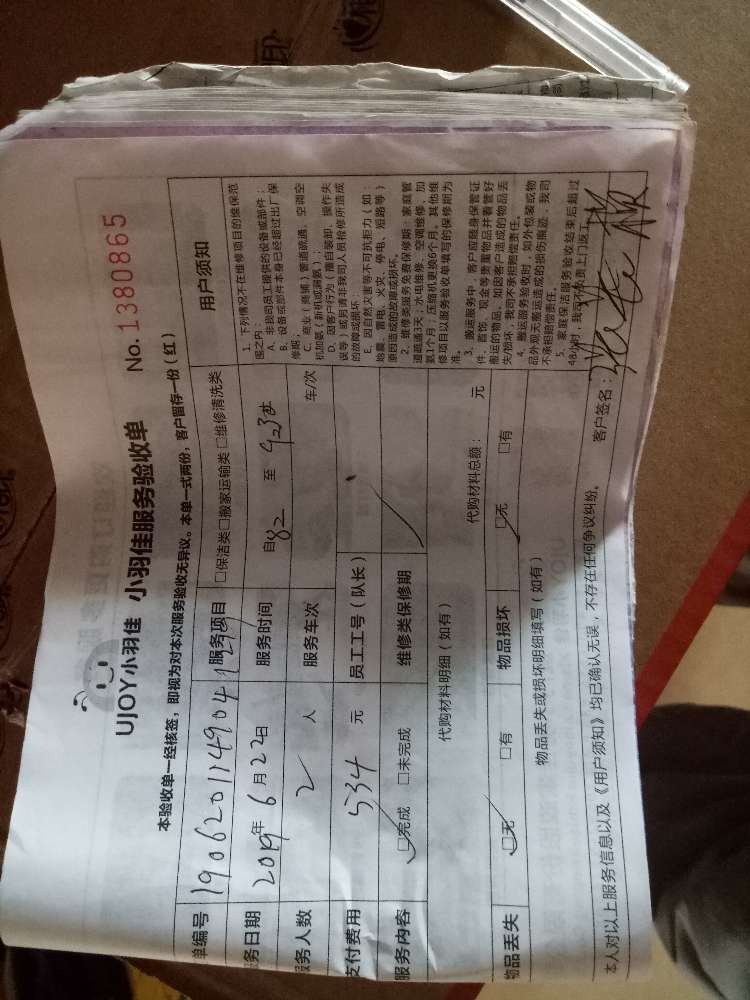 UJOY小羽佳 小羽佳服务验收单 No. 1380865
本验收单一经核签，即视为对本次服务验收无异议。本单一式两份，客户留存一份（红）
单编号 服务项目 □保洁类□搬家运输类 □维修清洗类
服务日期 2019年6月22日 服务时间 自82 至
服务人数 2 人 服务车次 车/次
支付费用 534 元 员工工号（队长）
服务内容 □完成 □未完成 维修类保修期
代购材料明细（如有） 代购材料总额： 元
物品丢失 □无 □有 物品损坏 □无 □有
物品丢失或损坏明细填写（如有）
用户须知
1、下列情况不在维修项目的维保范
围之内：
A、非我司员工提供的设备或部件；
B、设备或部件本身已经超过出厂保
修期
C、商业（商铺）管道疏通、空调空
机加氨（新机或漏氨）；
D、因客户行为（擅自装卸、操作失
误等）或另请非我司人员检修所造成
的故障或损坏；
E、因自然灾害等不可抗拒力（如：
地震、雷电、火灾、停电、短路等）
原因造成的故障或损坏。
2、维修类服务免费保修期：家庭管
道疏通3天；水电维修、空调维修、加
氨1个月；压缩机更换6个月，其他维
修项目以服务验收单填写的保修期为
准。
3、搬运服务中，客户应随身保管证
件、首饰、现金等贵重物品并看管好
搬运的物品，如因客户造成的物品丢
失/损坏，我司不承担赔偿责任。
4、搬运服务验收时，如外包装或物
品外观无搬运造成的损伤痕迹，我司
不承担赔偿责任。
5、家庭保洁服务验收结束后超过
48小时，我司不负责上门返工。
本人对以上服务信息以及《用户须知》均已确认无误，不存在任何争议纠纷。 客户签名：